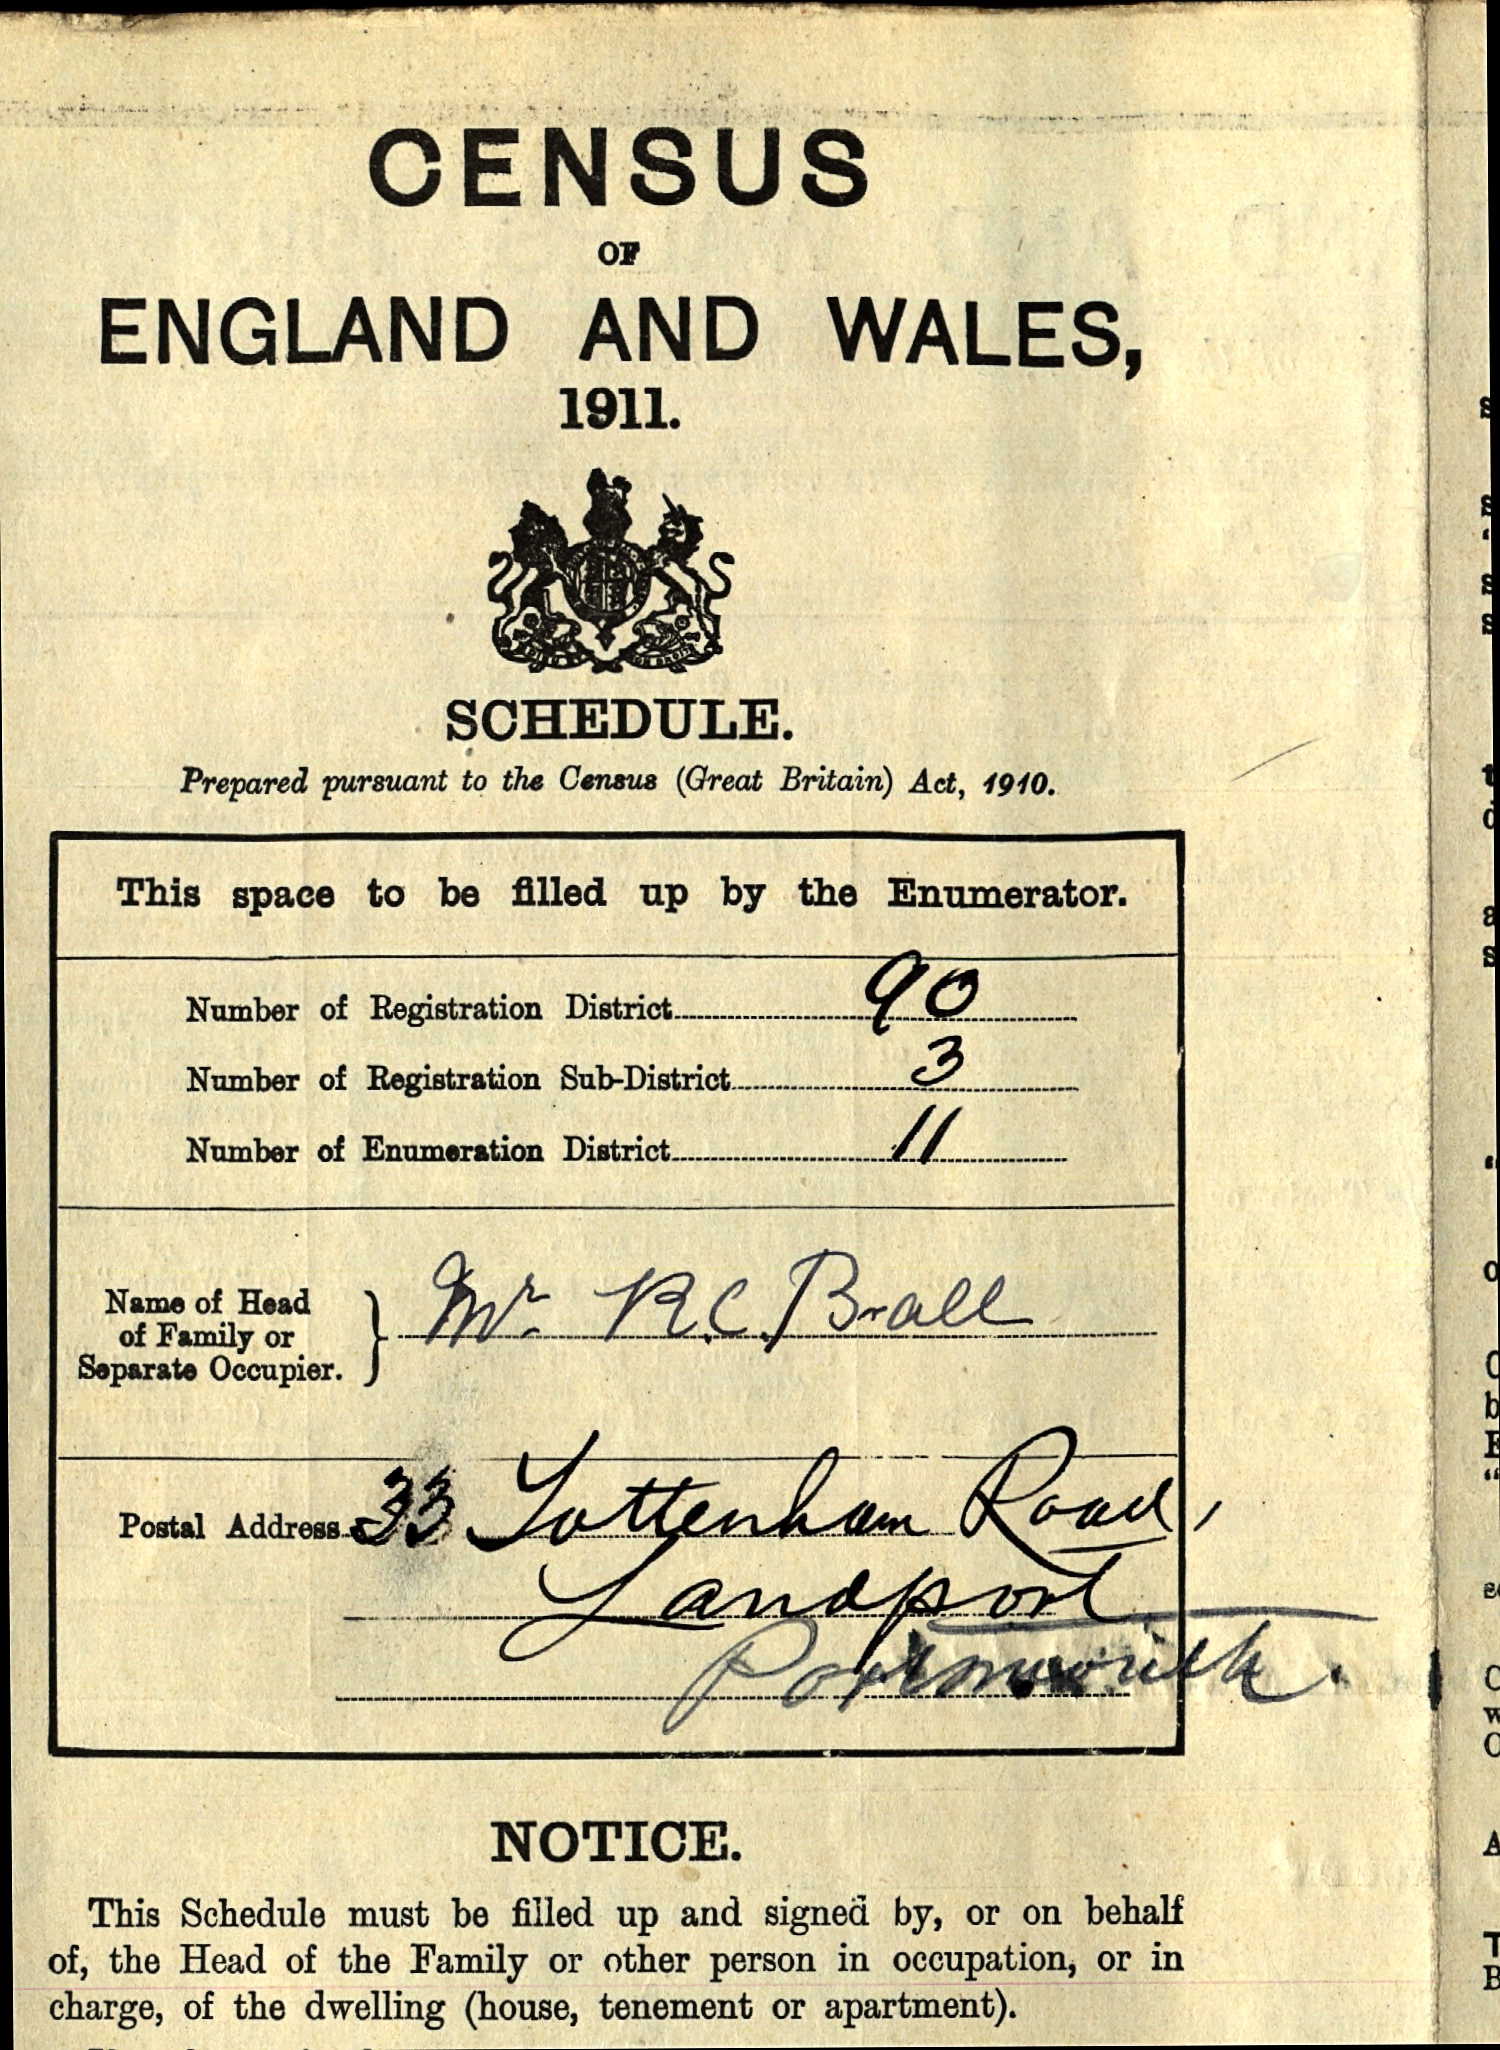 CENSUS
OF
ENGLAND AND WALES,
1911.
SCHEDULE.
Prepared pursuant to the Census (Great Britain) Act, 1910.
This space to be filled up by the Enumerator.
Number of Registration District 90
Number of Registration Sub-District 3
Number of Enumeration District 11
Name of Head
of Family or
Separate Occupier.
Mr R.C. Brall
Postal Address 33 Tottenham Road,
Landport
Portsmouth.
NOTICE.
This Schedule must be filled up and signed by, or on behalf
of, the Head of the Family or other person in occupation, or in
charge, of the dwelling (house, tenement or apartment).